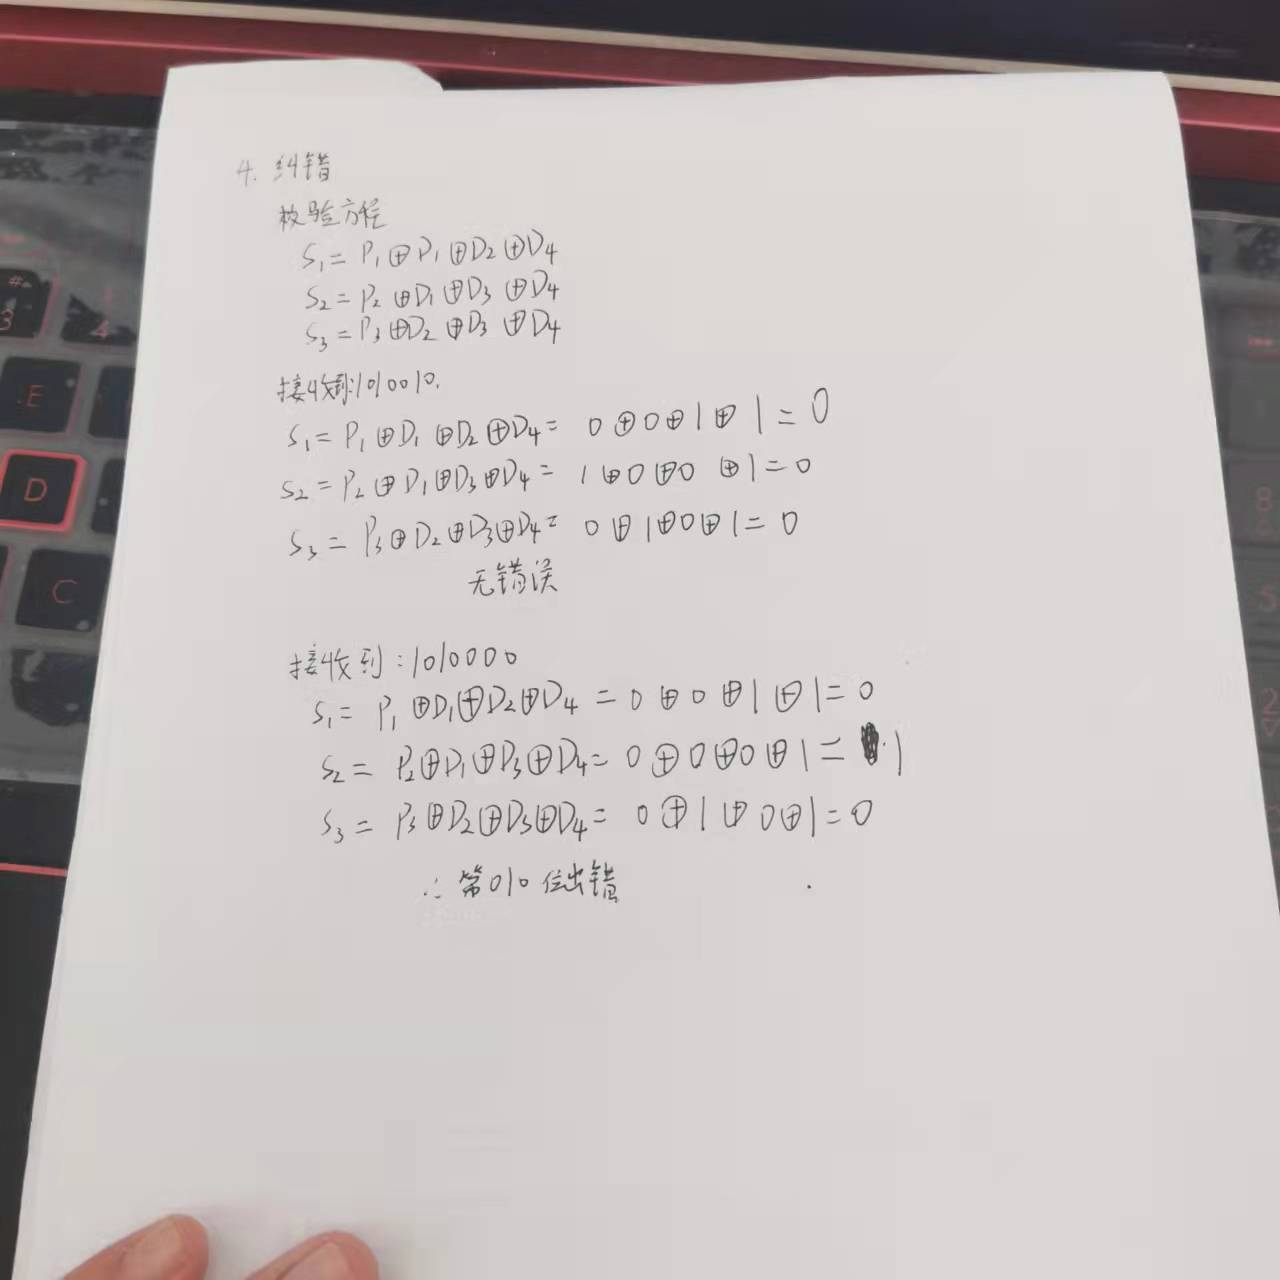 4. 纠错
校验方程
S₁= P₁⊕D₁⊕D₂⊕D₄
S₂= P₂⊕D₁⊕D₃⊕D₄
S₃= P₃⊕D₂⊕D₃⊕D₄
接收到:1010010.
S₁= P₁⊕D₁⊕D₂⊕D₄= 0⊕0⊕1⊕1=0
S₂= P₂⊕D₁⊕D₃⊕D₄= 1⊕0⊕0⊕1=0
S₃= P₃⊕D₂⊕D₃⊕D₄= 0⊕1⊕0⊕1=0
无错误
接收到:1010000
S₁= P₁⊕D₁⊕D₂⊕D₄=0⊕0⊕1⊕1=0
S₂= P₂⊕D₁⊕D₃⊕D₄=0⊕0⊕0⊕1=1
S₃= P₃⊕D₂⊕D₃⊕D₄= 0⊕1⊕0⊕1=0
∴ 第010位出错
#
3
4
E
D
C
8
5
2